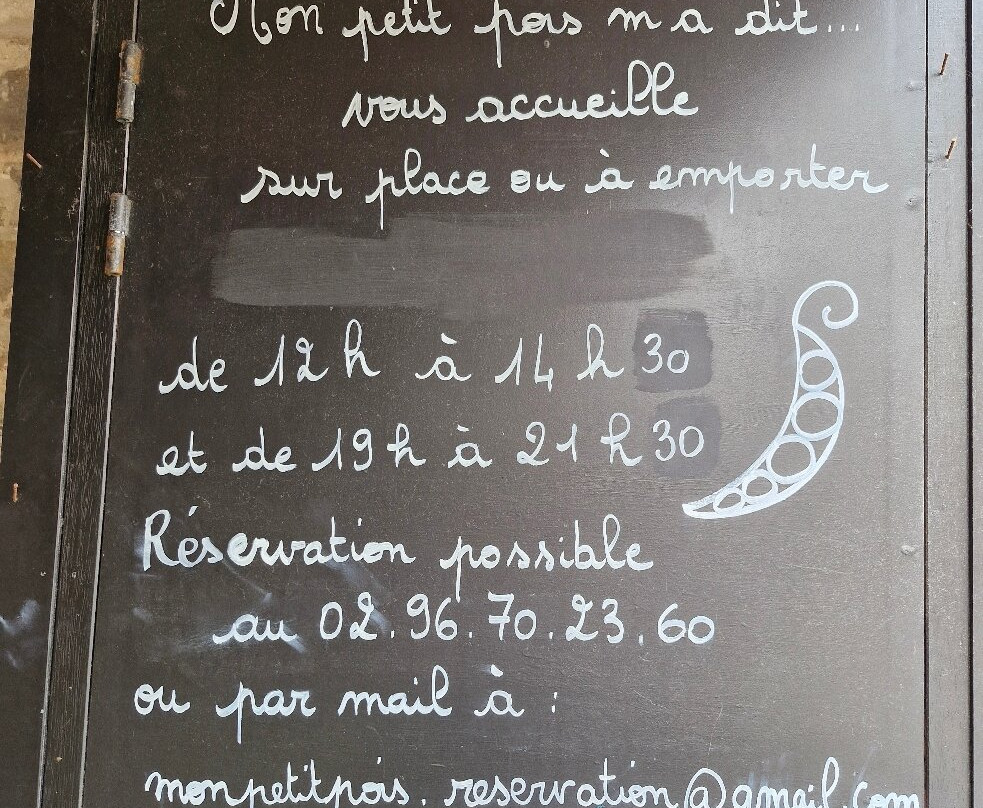 Mon petit pois m'a dit...
vous accueille
sur place ou à emporter
de 12h à 14h30
et de 19h à 21h30
Réservation possible
au 02.96.70.23.60
ou par mail à :
monpetitpois.reservation@gmail.com